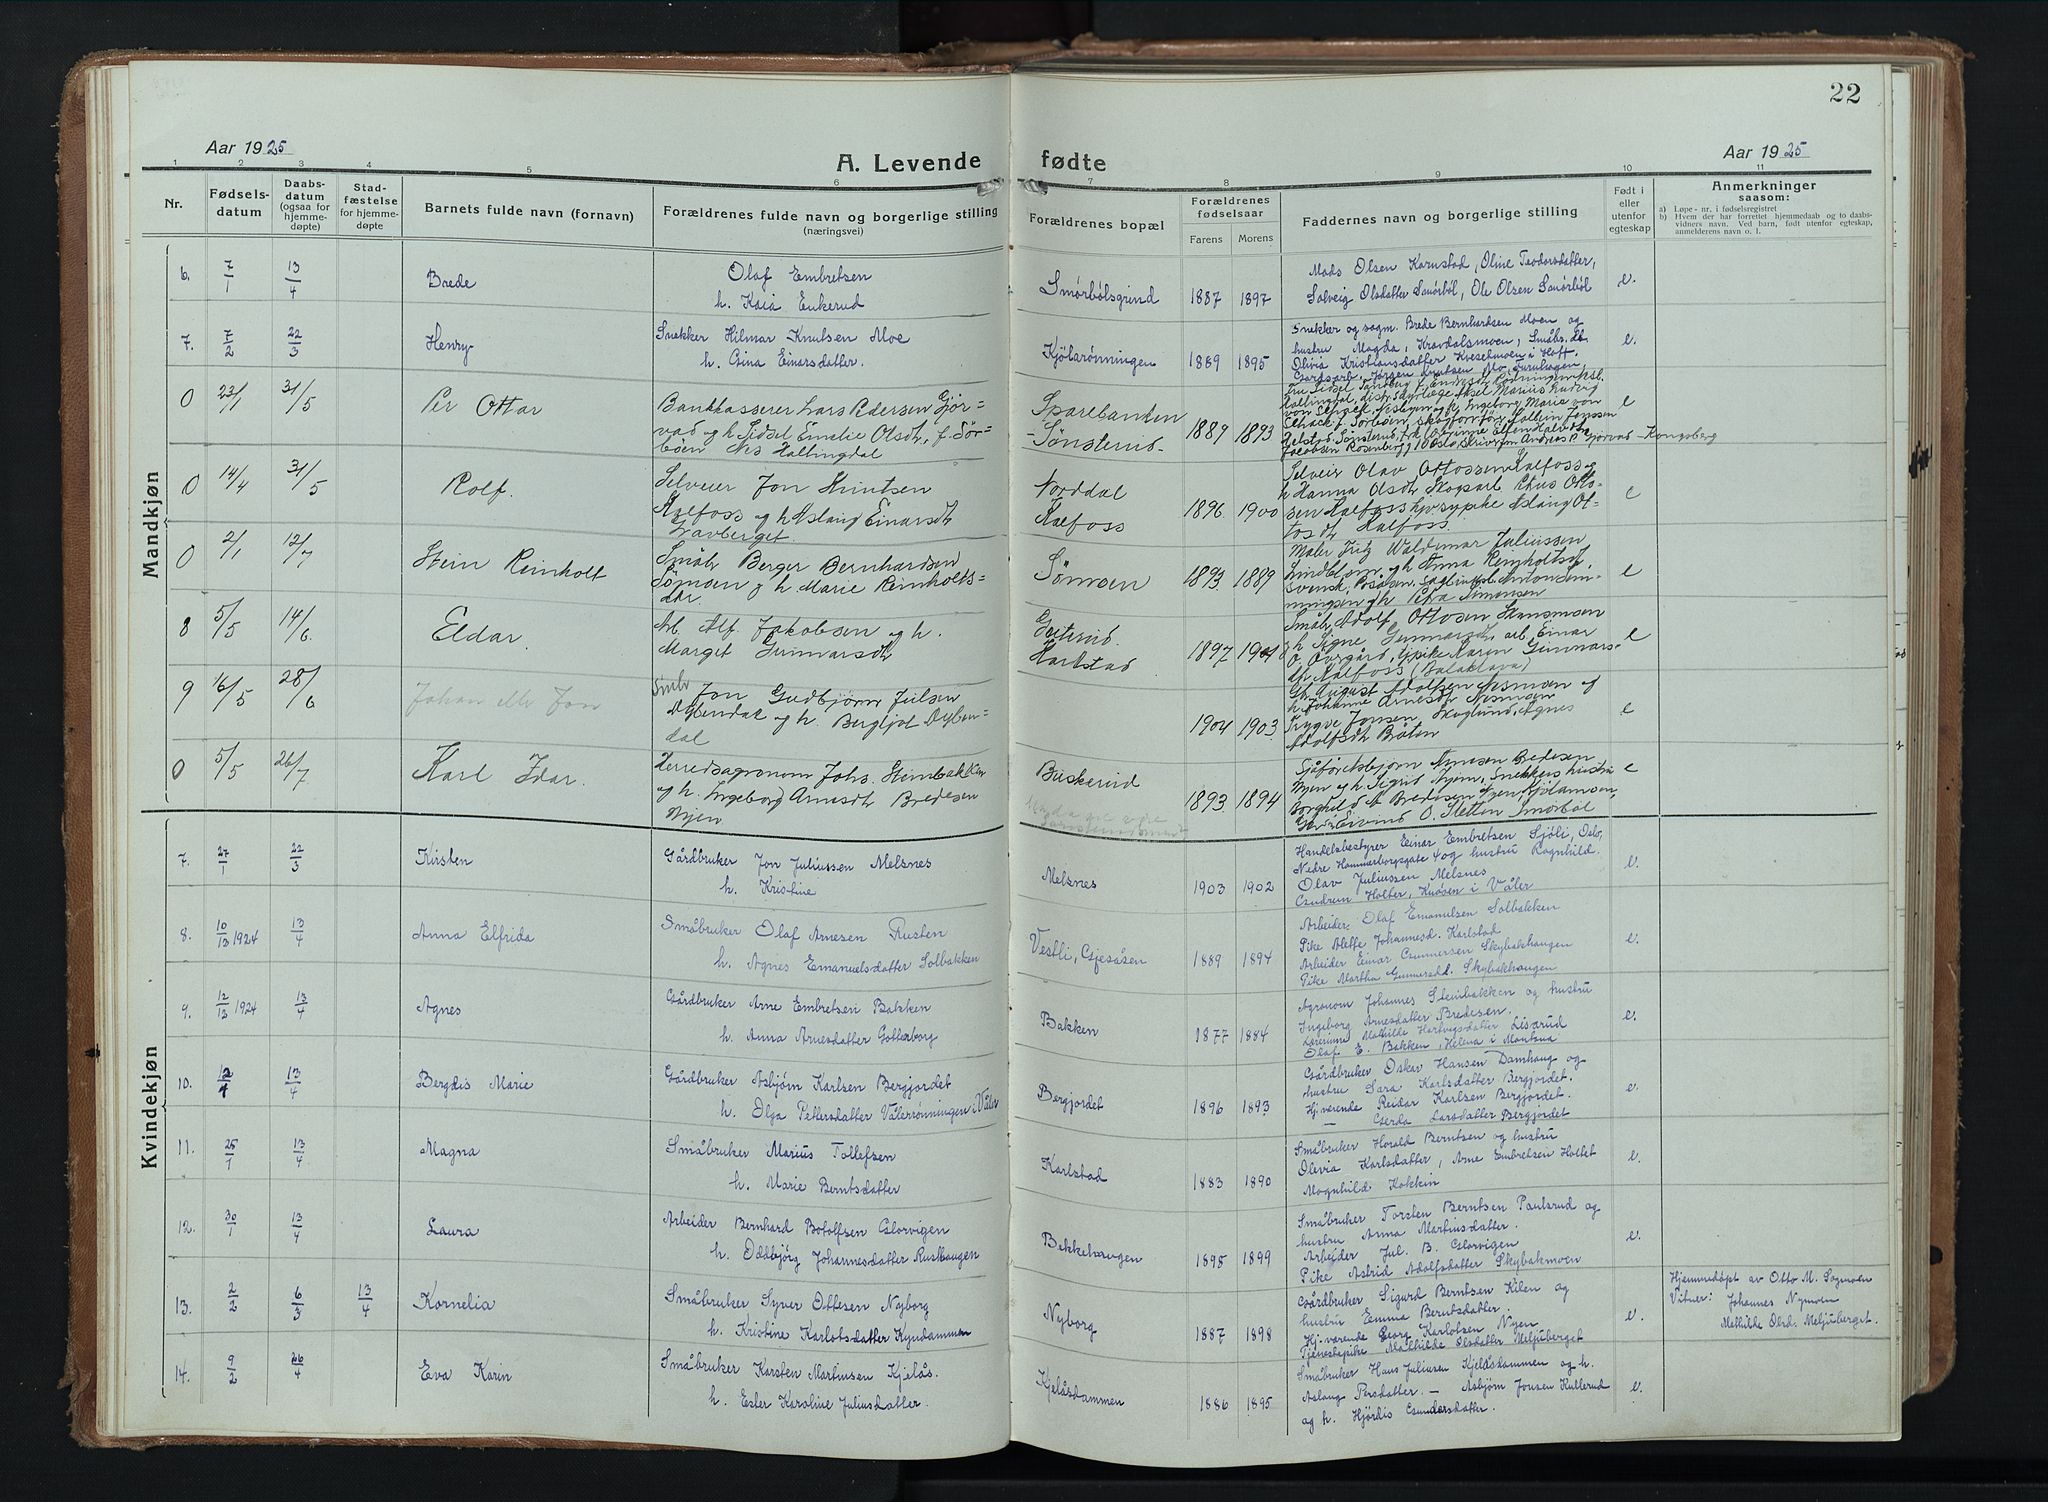 22
Aar 1925
A. Levende
fødte
Aar 1925
1 2 3 4 5 6 7 8 9 10 11
Nr.
Fødsels-
datum
Daabs-
datum
(ogsaa for
hjemme-
døpte)
Stad-
fæstelse
for hjemme-
døpte
Barnets fulde navn (fornavn)
Forældrenes fulde navn og borgerlige stilling
(næringsvei)
Forældrenes bopæl
Forældrenes
fødselsaar
Farens Morens
Faddernes navn og borgerlige stilling
Født i
eller
utenfor
egteskap
Anmerkninger
saasom:
a) Løpe-nr. i fødselsregistret
b) Hvem der har forrettet hjemmedaab og to daabs-
vidners navn. Ved barn, født utenfor egteskap,
anmelderens navn o. l.
Mandkjøn
6. 7/1 13/4 Brede
Olaf Embretsen
h. Kaia Enkerud
Smørbølsgrind 1887 1897
Mads Olsen Karnstad, Oline Teodorsdatter,
Solveig Olsdatter Smörböl, Ole Olsen Smörböl
e.
7. 7/2 22/3 Henry
Snekker Hilmar Knutsen Moe
h. Gina Einarsdatter.
Kjölarønningen 1889 1895
Snekker og sagm. Brede Bernhardsen Moen og
hustru Magda, Kravdalsmoen, Småbr. db.
Olivia Kristiansdatter Kveselmoen i Hoff.
Gardsarb. Jørgen Knutsen Mo Furuhagen
e.
0 23/1 31/5 Per Ottar
Bankkasserer Lars Pedersen Gjør=
vad og h Sidsel Emelie Olsdtr, f. Sør=
böen Nes Hallingdal
Sparebanken
-Sønsterud- 1889 1893
e
0 14/4 31/5 Rolf.
Selveier Jon Knutsen
Kalfoss og h Aslaug Einarsdtr
Gravberget.
Norddal
Kalfoss 1896. 1900
Selveier Olav Ottossen Kalfoss og
h Hanna Olsdtr Skogarb Petrus Otto-
sen Kalfoss husv pike Aslaug Ot-
tos dtr Kalfoss.
e
0 2/1 12/7 Stein Reinholt
Småbr Berger Bernhardsen
Sømoen og h Marie Reinholts=
dtr.
Sømoen 1893 1889
Maler Fritz Waldemar Juliussen
Lindblom og h Anna Reinholtsdtr.
e
8 5/5 14/6. Eldar.
Arb. Alf. Jakobsen og h.
Marget Gunnarsdtr
Karlstad 1897 1901
Småbr Adolf Ottosen Stensmoen
og h Signe Gunnarsdtr, arb. Einar
O Övergård, Gpike Karen Gunnars-
dtr Kalfoss (Balaklava)
e
9 16/5 28/6 Johan eller Jon
Småbr Jon Gudbjörn Julsen
Dybendal og h. Bergljot Dyben-
dal
1904 1903.
Gbr. August Adolfsen Nesmoen og
h. Johanne Arnesdtr Nesmoen
Trygve Jonsen, Skoglund, Agnes
Adolfsdtr Bråten
e
0 5/5 26/7 Karl Idar.
Herredsagronom Johs. Steinbakken
og h. Ingeborg Arnesdtr Bredesen
Nyen
Buskerud 1893. 1894
Nyen og h Sigrid Nyen, Snekkers hustru
Borghild A Bredesen Nyen Kjölamoen,
Gbr. Eivind O. Stetten Smørböl
e
Kvindekjøn
7. 27/1 22/3 Kirsten
Gårdbruker Jon Juliussen Melsnes
h. Kristine
Melsnes 1903 1902
Handelsbestyrer Einar Embretsen Sjöli, Oslo,
Nedre Hammarborgsgate 4 og hustru Ragnhild.
Olav Juliussen Melsnes
Gudrun Holter, Knösen i Våler
e.
8. 10/12 1924 13/4 Anna Elfrida
Småbruker Olaf Arnesen Rusten
h. Agnes Emanuelsdatter Solbakken
Vestli, Gjesåsen 1889 1894
Arbeider Olaf Emanulsen Solbakken
Pike Alette Johannesd. Karlstad
Arbeider Einar Gunnersen Skybakhaugen
Pike Martha Gunnersd. Skybakhaugen
e.
9. 12/12 1924 13/4 Agnes
Gårdbruker Arne Embretsen Bakken
h. Anna Arnesdatter Gotterborg
Bakken 1877 1884
Agronom Johannes Steinbakken og hustru
Ingeborg Arnesdatter Bredesen.
Lærerinne Mathilde Hartvigsdatter Lisærud
Olaf E. Bakken, Helena i Montana
e.
10. 12/1 13/4 Bergdis Marie
Gårdbruker Asbjørn Karlsen Bergjordet
h. Olga Pettersdatter Vålerrönningen i Våler
Bergjordet 1896 1893
Gårdbruker Oskar Hansen Damhaug og
hustru Sara Karlsdatter Bergjordet.
Hj. værende Reidar Karlsen Bergjordet.
— Gerda Larsdatter Bergjordet
e.
11. 25/1 13/4 Magna
Småbruker Marius Tollefsen
h. Marie Berntsdatter
Karlstad 1883 1890
Småbruker Harald Berntsen og hustru
Olevia Karlsdatter, Arne Embretsen Holtet
Magnhild Kokkin
e.
12. 30/1 13/4 Laura
Arbeider Bernhard Botolfsen Glorvigen
h. Oddbjörg Johannesdatter Rusthaugen
Bekkehaugen 1895 1899
Småbruker Torsten Berntsen Paulsrud og
hustru Anna Martinsdatter.
Arbeider Jul. B. Glorvigen
Pike Astrid Adolfsdatter Skybakmoen
e.
13. 2/2 6/3 13/4 Kornelia
Småbruker Syver Ottesen Nyborg
h. Kristine Karlotsdatter Kyndammen
Nyborg 1887 1898
Gårdbruker Sigurd Berntsen Kilen og
hustru Emma Berntsdatter.
Hj. værende Georg Karlotsen Nyen
Tjenestepike Mathilde Olsdatter Meljuberget
e.
Hjemmedöpt av Otto M. Sagmoen
Vitner: Johannes Nymoen
Mathilde Olsd. Meljuberget.
14. 9/2 26/4 Eva Karin
Småbruker Karsten Martinsen Kjelås.
h. Ester Karoline Juliusdatter.
Kjelåsdammen 1886 1895
Småbruker Hans Juliusen Kjelåsdammen og h.
Aslaug Persdatter. — Asbjørn Jonsen Kullerud
og h. Hjördis Gundersdatter.
e.